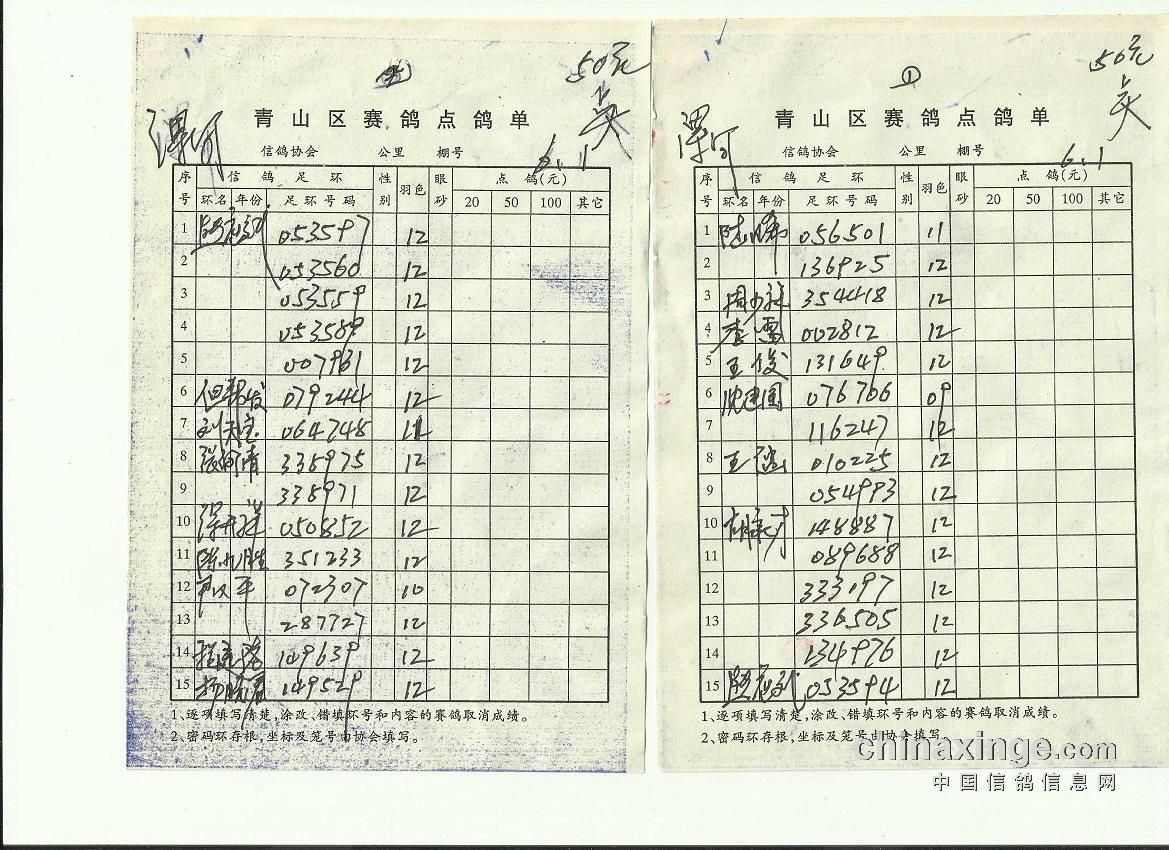 50元
青山区赛鸽点鸽单
漯河
信鸽协会 公里 棚号
6.1
序号 信鸽足环 性别 羽色 眼砂 点鸽(元)
环名 年份 足环号码 20 50 100 其它
1 053597 12
2 053560 12
3 053559 12
4 053589 12
5 007961 12
6 079244 12
7 刘天宝 064748 11
8 338975 12
9 338971 12
10 050852 12
11 351233 12
12 072307 10
13 287727 12
14 149639 12
15 149529 12
1、逐项填写清楚,涂改、错填环号和内容的赛鸽取消成绩。
2、密码环存根,坐标及笼号由协会填写。
① 50元
青山区赛鸽点鸽单
漯河
信鸽协会 公里 棚号
6.1
序号 信鸽足环 性别 羽色 眼砂 点鸽(元)
环名 年份 足环号码 20 50 100 其它
1 056501 11
2 136925 12
3 354418 12
4 李雷 002812 12
5 王俊 131649 12
6 沈建国 076706 09
7 116247 12
8 010225 12
9 054993 12
10 148887 12
11 089688 12
12 333197 12
13 336505 12
14 134976 12
15 053594 12
1、逐项填写清楚,涂改、错填环号和内容的赛鸽取消成绩。
2、密码环存根,坐标及笼号由协会填写。
chinaxinge.com
中国信鸽信息网